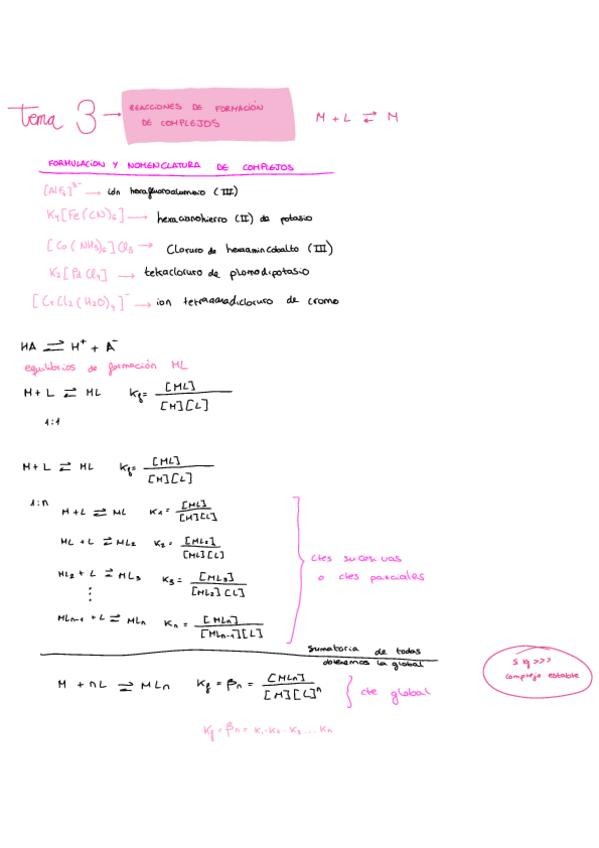 tema 3 → REACCIONES DE FORMACIÓN DE COMPLEJOS
M + L ⇄ M
FORMULACION Y NOMENCLATURA DE COMPLEJOS
[AlF6]3- → ión hexafluoroaluminio (III)
K4[Fe(CN)6] → hexacianohierro (II) de potasio
[Co(NH3)6]Cl3 → Cloruro de hexamincobalto (III)
K2[PdCl4] → tetracloruro de plomodipotasio
[CrCl2(H2O)4]- → ion tetraaquadicloruro de cromo
HA ⇄ H+ + A-
equilibrios de formación ML
M + L ⇄ ML Kf = [ML] / [M][L]
1:1
M + L ⇄ ML Kf = [ML] / [M][L]
1:n
M + L ⇄ ML K1 = [ML] / [M][L]
ML + L ⇄ ML2 K2 = [ML2] / [ML][L]
ML2 + L ⇄ ML3 K3 = [ML3] / [ML2][L]
⋮
MLn-1 + L ⇄ MLn Kn = [MLn] / [MLn-1][L]
ctes sucesivas
o ctes parciales
sumatoria de todas
obtenemos la global
M + nL ⇄ MLn Kf = βn = [MLn] / [M][L]n
cte global
Kf = βn = K1·K2·K3...Kn
>>>
complejo estable